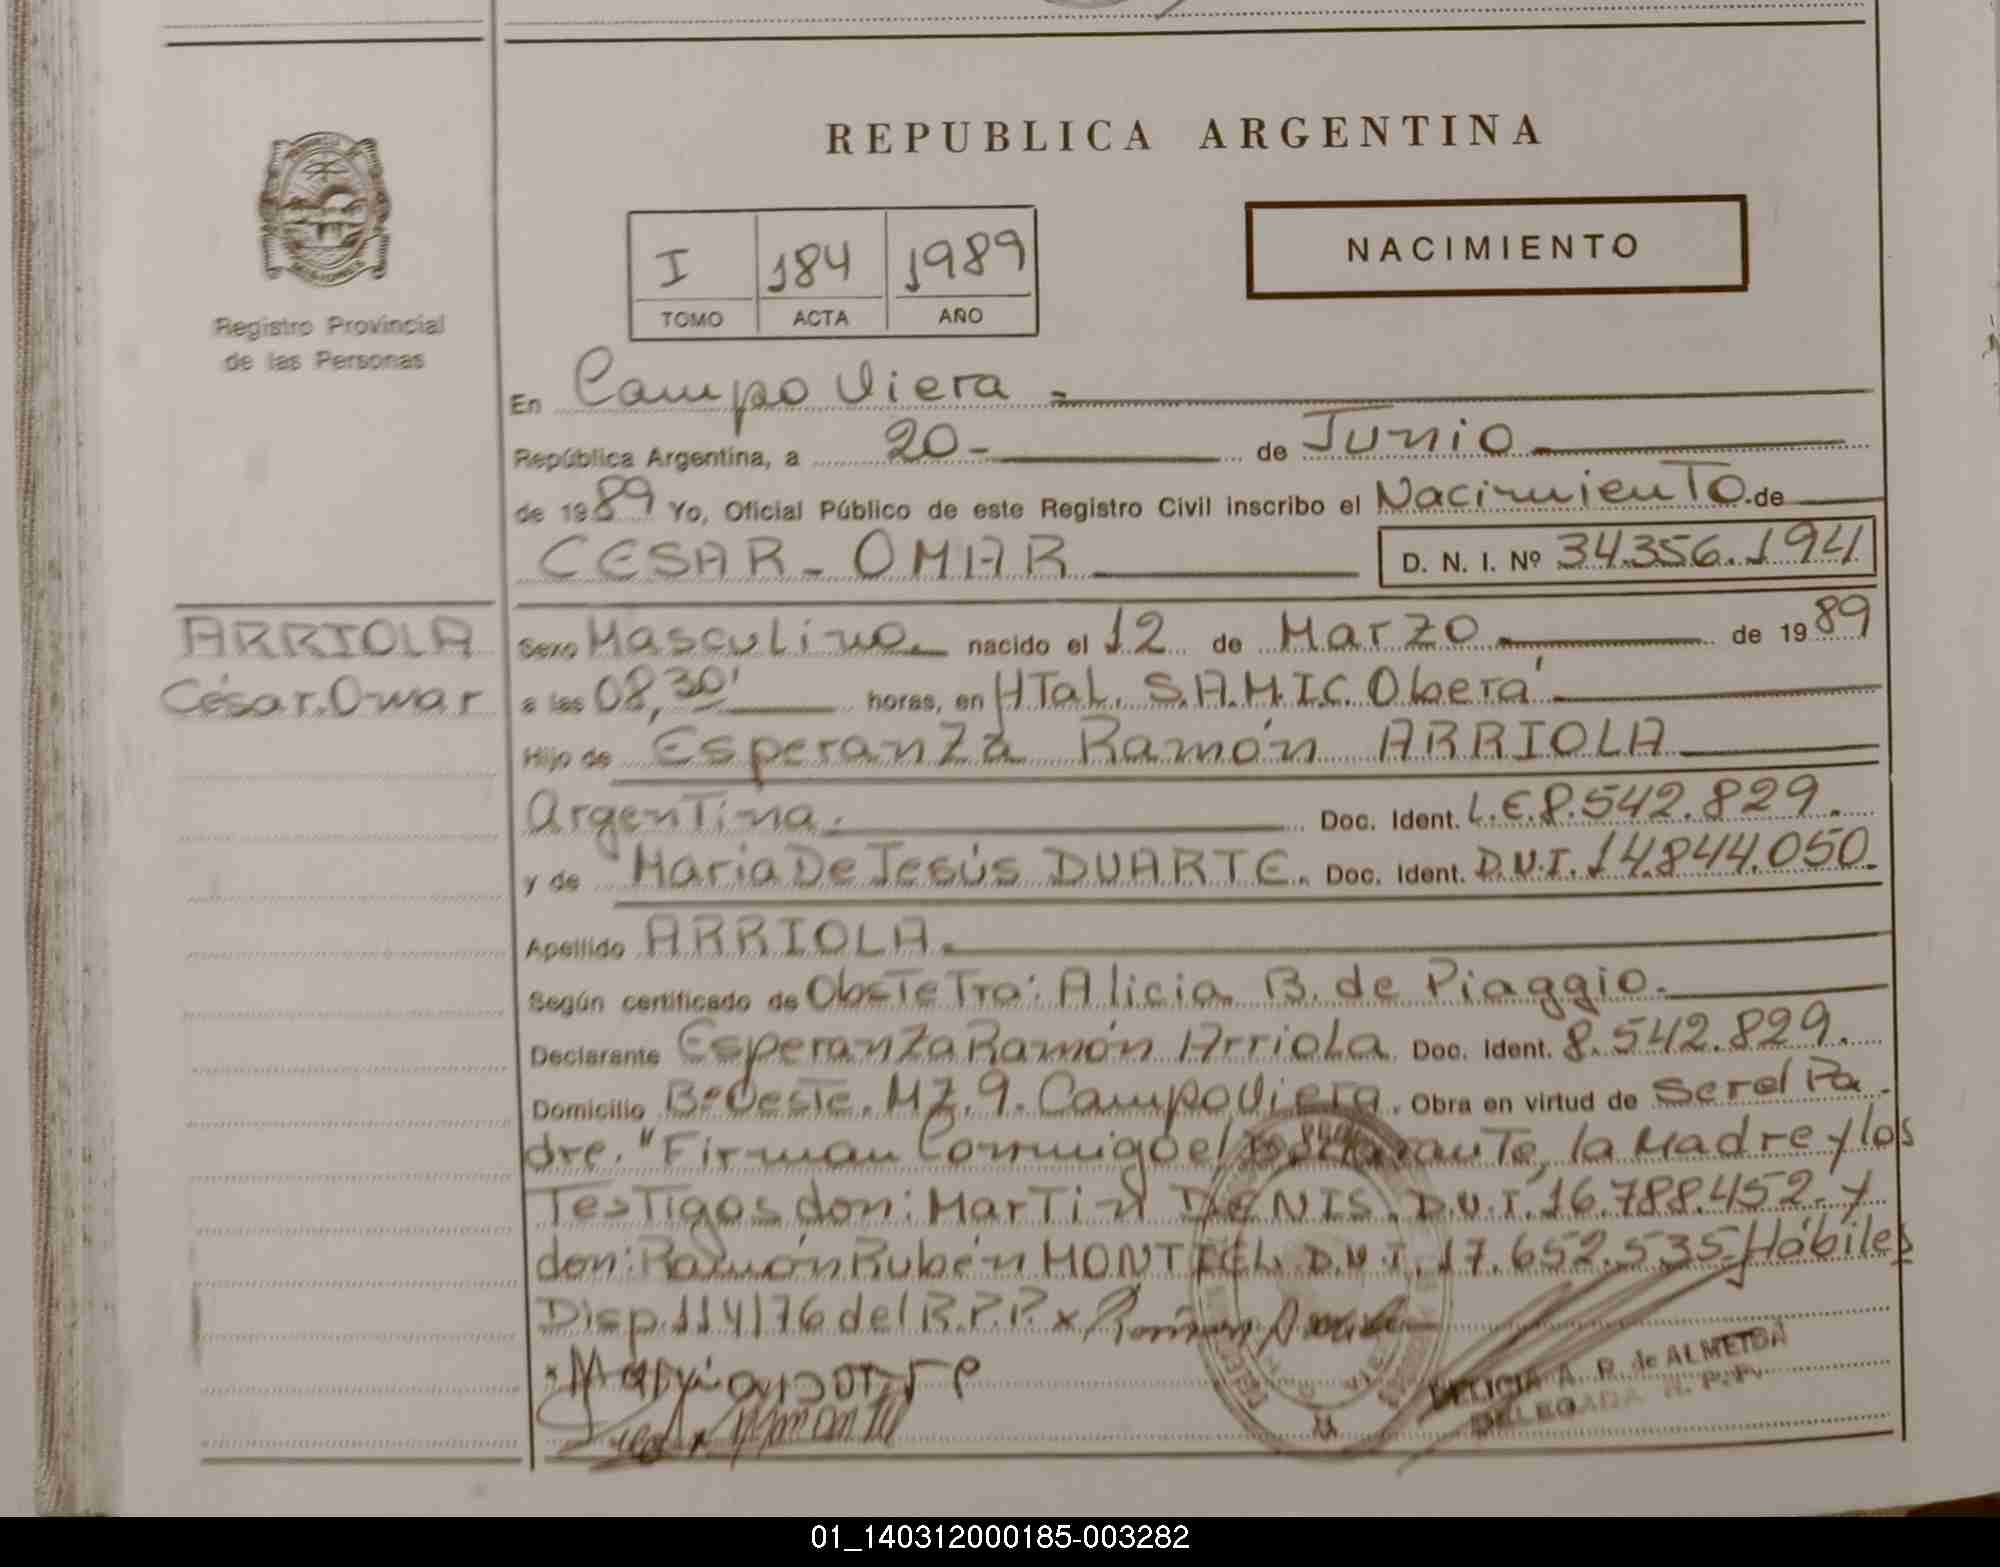 REPUBLICA ARGENTINA
NACIMIENTO
I 184 1989
TOMO ACTA AÑO
Registro Provincial
de las Personas
En Campo Viera =
República Argentina, a 20- de Junio
de 1989 Yo, Oficial Público de este Registro Civil inscribo el Nacimiento de
CESAR - OMAR D. N. I. Nº 34.356.194
ARRIOLA
César Omar
Sexo Masculino nacido el 12 de Marzo de 1989
a las 08,30' horas, en HTal. S.A.M.I.C. Oberá
Hijo de Esperanza Ramón ARRIOLA
Argentina. Doc. Ident. L.E 8.542.829.
y de María De Jesús DUARTE. Doc. Ident. D.N.I. 14.844.050.
Apellido ARRIOLA.
Según certificado de Obstetra: Alicia B. de Piaggio.
Declarante Esperanza Ramón Arriola Doc. Ident. 8.542.829.
Domicilio Bº Oeste. MZ. 9. Campo Viera. Obra en virtud de Ser el Pa
dre. "Firman Conmigo el Declarante, la Madre y los
Testigos don: Martin DENIS. D.N.I. 16.788.452. y
don: Ramón Rubén MONTIEL. D.N.I. 17.652.535 Hábiles
Disp. 114/76 del R.P.P. x
DELICIA A. R. de ALMEIDA
DELEGADA R. P. P.
01_140312000185-003282